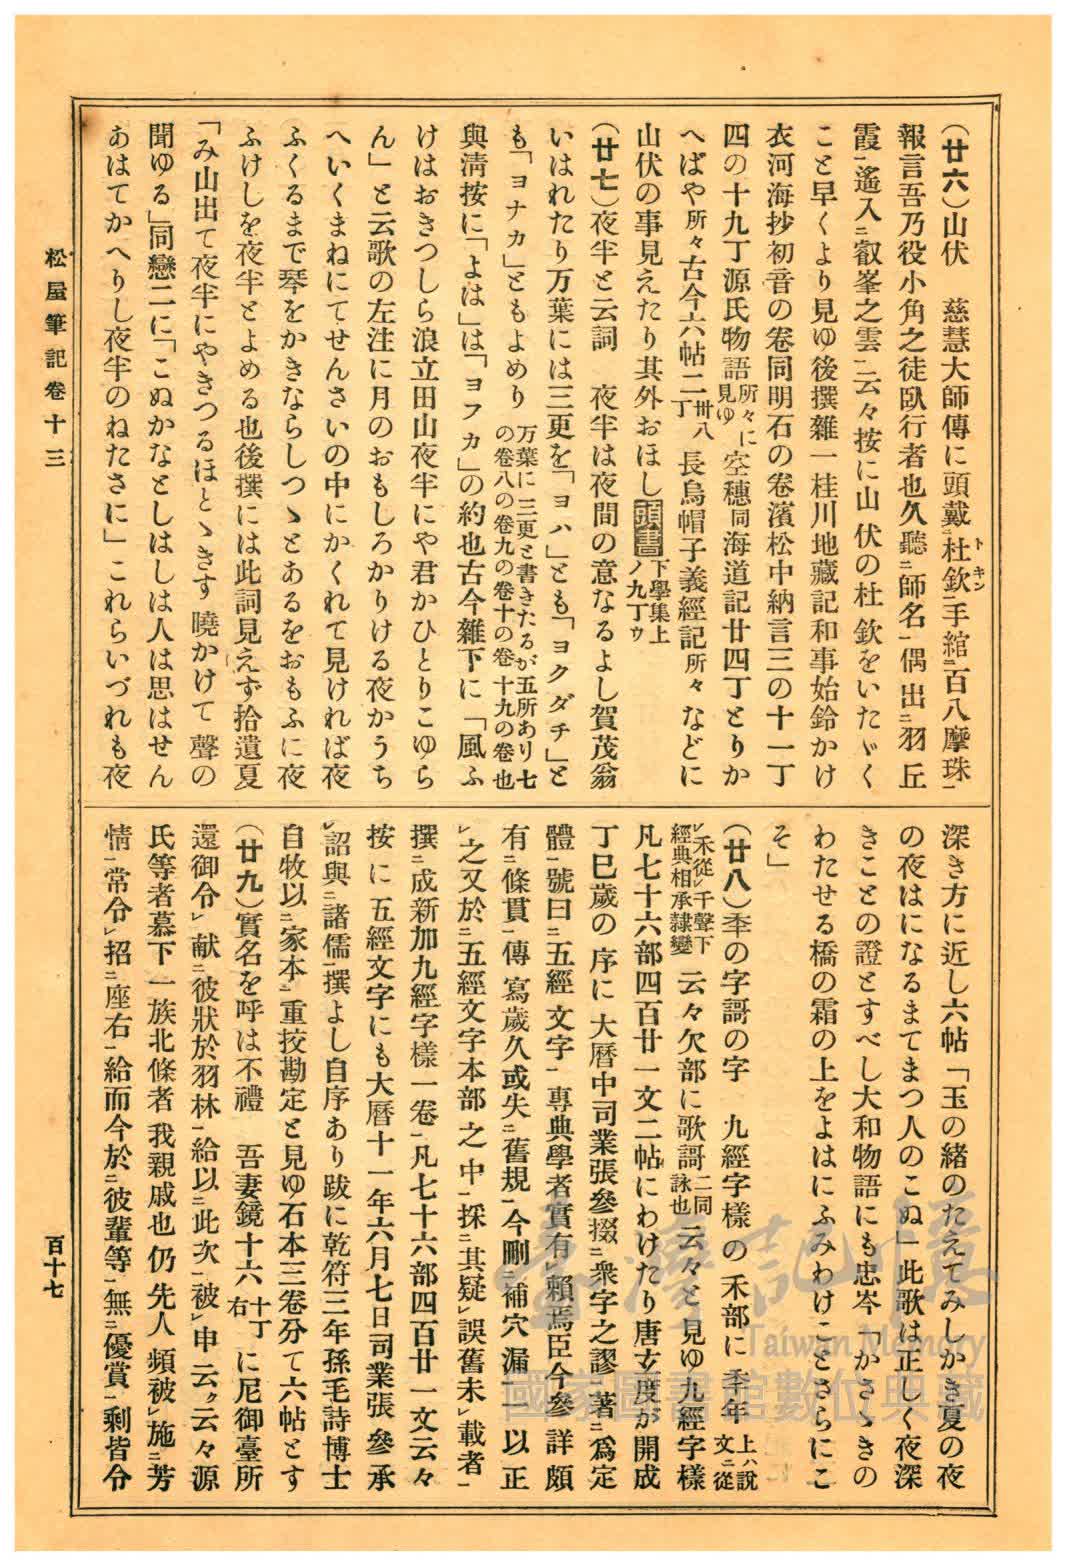 (廿六)山伏　慈慧大師傳に頭戴ニ杜欽一手綰ニ百八摩珠一
トキン
報言吾乃役小角之徒臥行者也久聽ニ師名一偶出ニ羽丘
霞一遙入ニ叡峯之雲ニ云々按に山伏の杜欽をいたゞく
こと早くより見ゆ後撰雜一桂川地藏記和事始鈴かけ
衣河海抄初音の卷同明石の卷濱松中納言三の十一丁
四の十九丁源氏物語所々に見ゆ空穗同海道記廿四丁とりか
へばや所々古今六帖二卅八丁長烏帽子義經記所々などに
山伏の事見えたり其外おほし頭書下學集上ノ九丁ウ
(廿七)夜半と云詞　夜半は夜間の意なるよし賀茂翁
いはれたり万葉には三更を「ヨハ」とも「ヨクダチ」と
も「ヨナカ」ともよめり万葉に三更と書きたるが五所あり七の卷八の卷九の卷十の卷十九の卷也
與淸按に「よは」は「ヨフカ」の約也古今雜下に「風ふ
けはおきつしら浪立田山夜半にや君かひとりこゆら
ん」と云歌の左注に月のおもしろかりける夜かうち
へいくまねにてせんさいの中にかくれて見ければ夜
ふくるまで琴をかきならしつゝとあるをおもふに夜
ふけしを夜半とよめる也後撰には此詞見えず拾遺夏
「み山出て夜半にやきつるほとゝきす曉かけて聲の
聞ゆる」同戀二に「こぬかなとしはしは人は思はせん
あはてかへりし夜半のねたさに」これらいづれも夜
深き方に近し六帖「玉の緒のたえてみしかき夏の夜
の夜はになるまてまつ人のこぬ」此歌は正しく夜深
きことの證とすべし大和物語にも忠岑「かさゝきの
わたせる橋の霜の上をよはにふみわけことさらにこ
そ」
(廿八)秊の字謌の字　九經字樣の禾部に秊年上ハ說文ニ從
レ禾從レ千聲下經典相承隷變云々欠部に歌謌二同詠也云々と見ゆ九經字樣
凡七十六部四百廿一文二帖にわけたり唐玄度が開成
丁巳歲の序に大曆中司業張參掇ニ衆字之謬一著ニ爲定
體一號曰ニ五經文字一專典學者實有レ賴焉臣今參詳頗
有ニ條貫一傳寫歲久或失ニ舊規一今刪ニ補穴漏一一以正
レ之又於ニ五經文字本部之中一採ニ其疑レ誤舊未レ載者一
撰ニ成新加九經字樣一卷一凡七十六部四百廿一文云々
按に五經文字にも大曆十一年六月七日司業張參承
レ詔與ニ諸儒一撰よし自序あり跋に乾符三年孫毛詩博士
自牧以ニ家本一重挍勘定と見ゆ石本三卷分て六帖とす
(廿九)實名を呼は不禮　吾妻鏡十六十丁右に尼御臺所
還御令レ献ニ彼狀於羽林一給以ニ此次一被レ申云ク云々源
氏等者幕下一族北條者我親戚也仍先人頻被レ施ニ芳
情一常令レ招ニ座右一給而今於ニ彼輩等一無ニ優賞一剩皆令
松屋筆記卷十三
百十七
臺灣記憶
Taiwan Memory
國家圖書館數位典藏